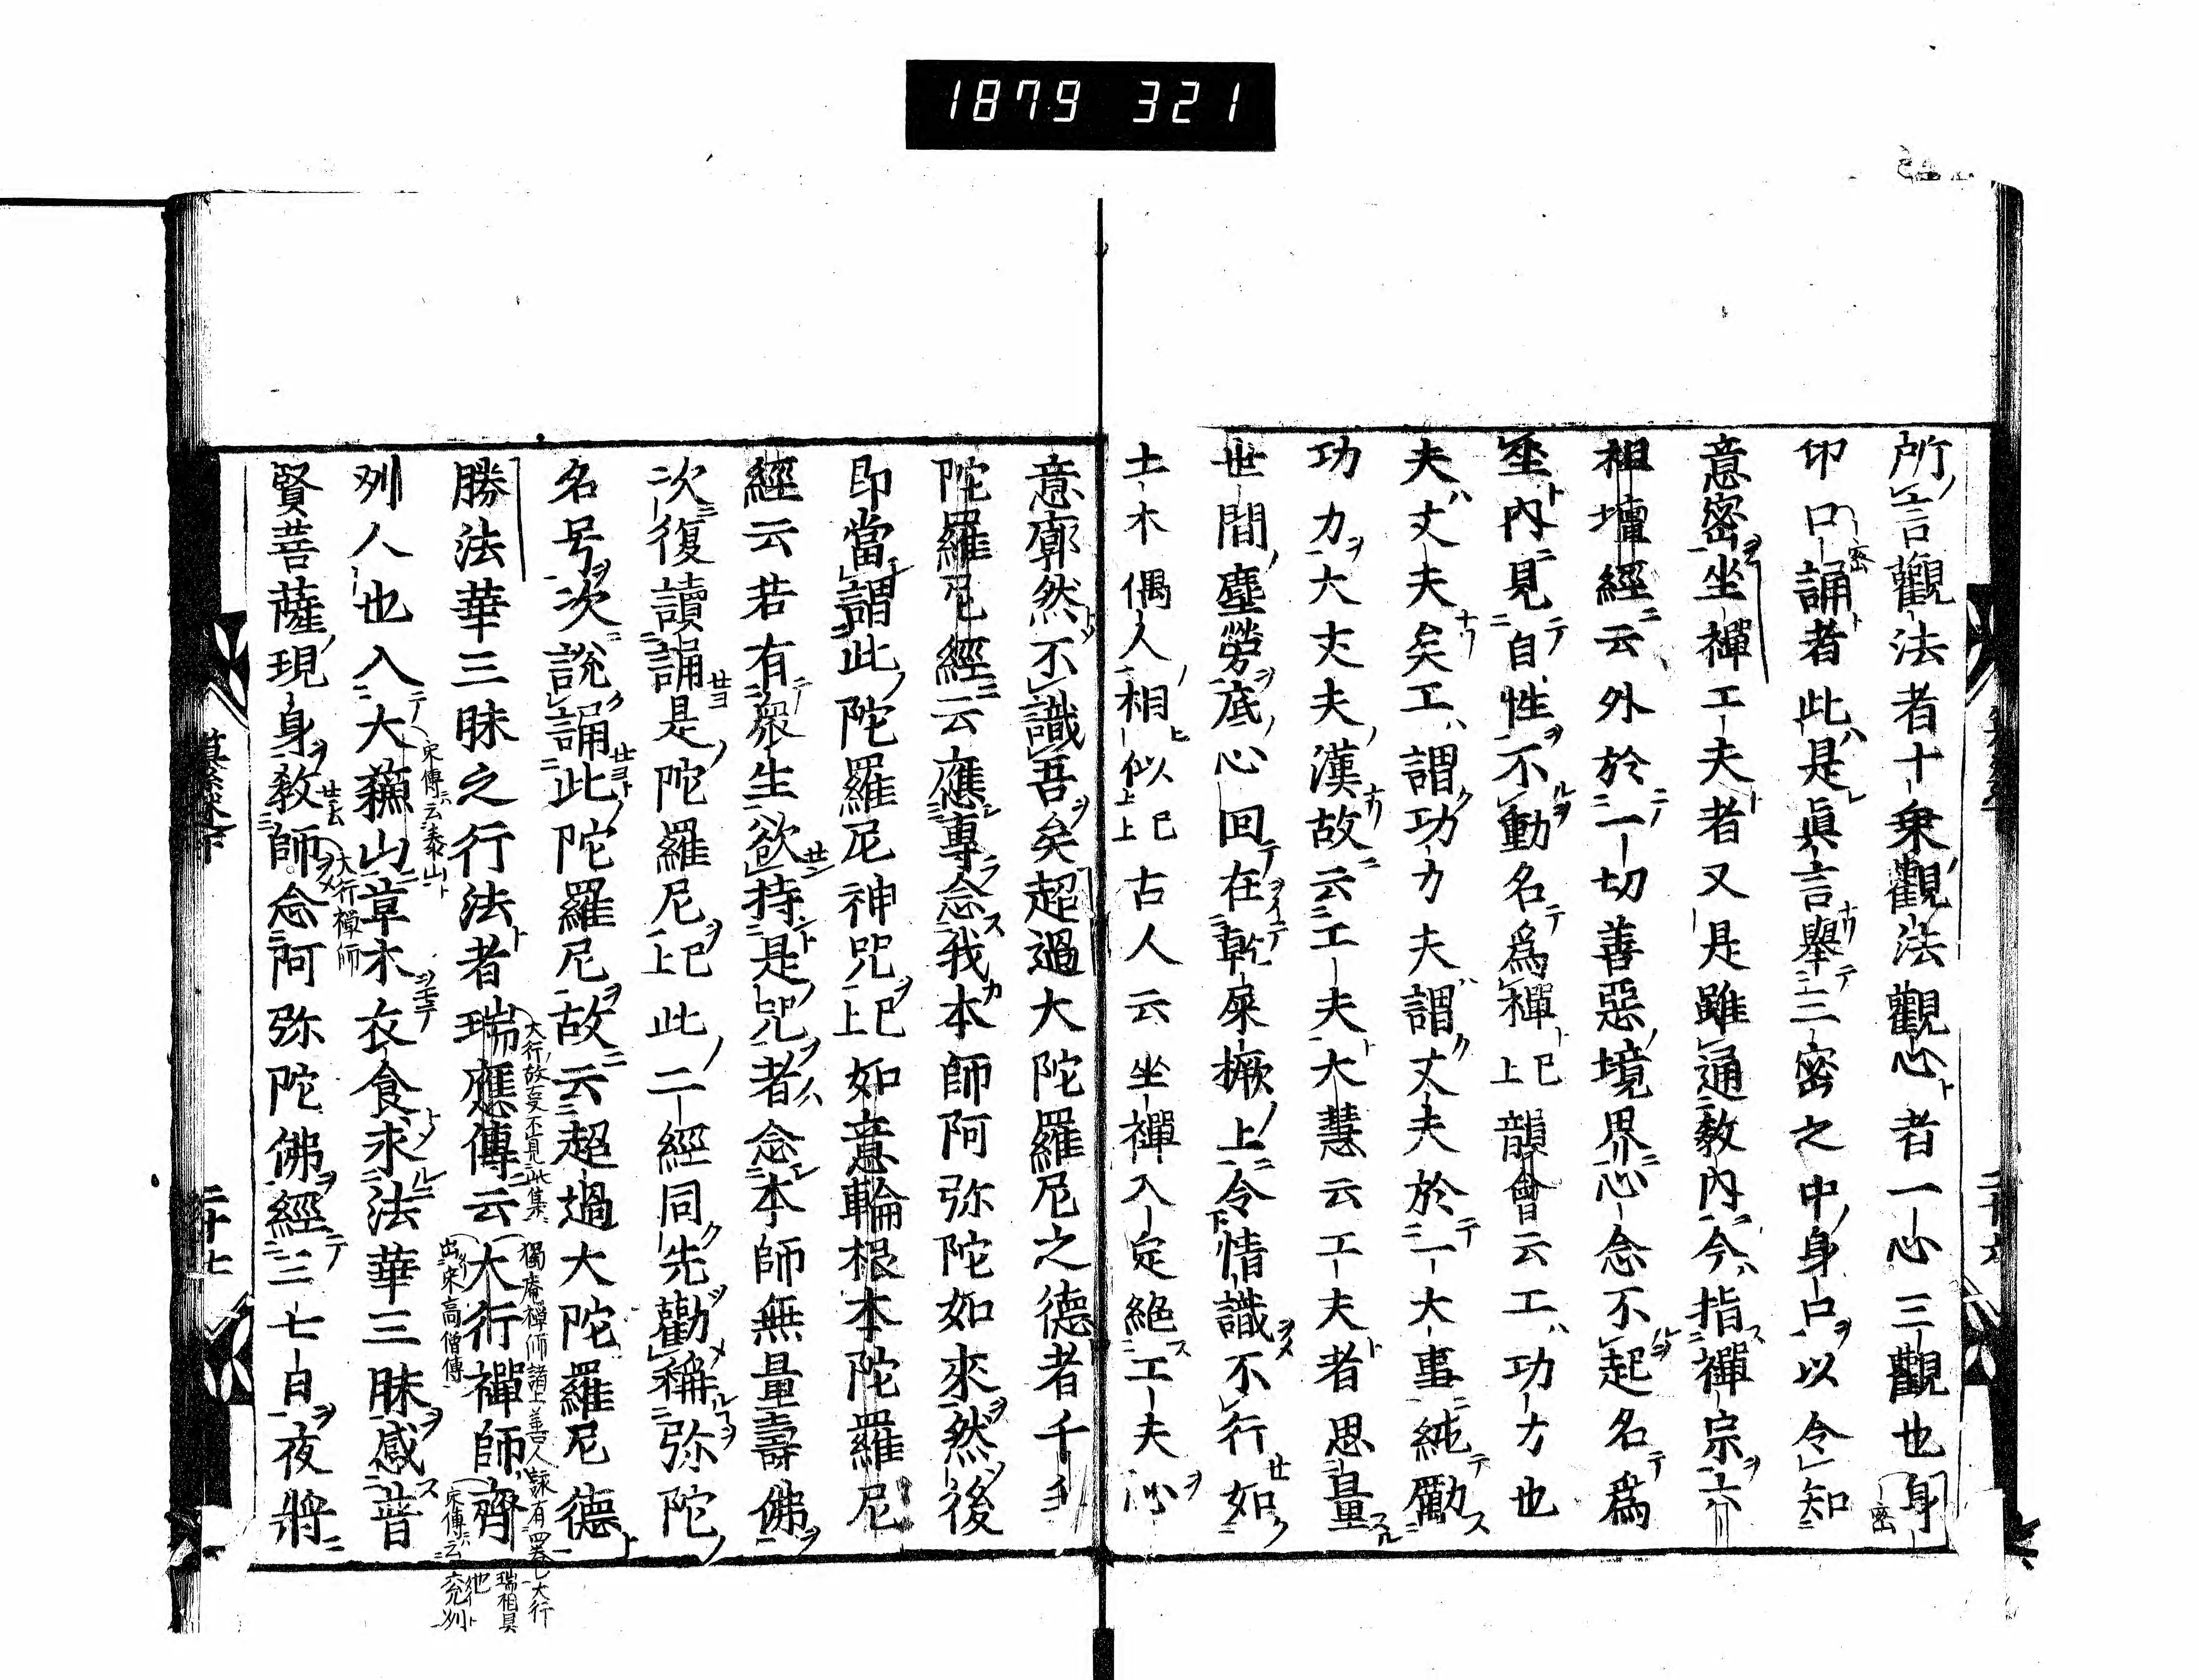 1879 321
所言觀法者十乗觀法觀心者一心三觀也身
印口誦者此是眞言舉三密之中身口以令知
意密坐禪工夫者又是雖通教内今指禪宗六
祖壇經云外於一切善惡境界心念不起名爲
坐内見自性不動名爲禪已上韻會云工功力也
夫丈夫矣工謂功力夫謂丈夫於一大事純勵
功力大丈夫漢故云工夫大慧云工夫者思量
世間塵勞底心回在乾屎橛上令情識不行如
土木偶人相似已上古人云坐禪入定絕工夫沁
意廓然不識吾矣超過大陀羅尼之德者千手
陀羅尼經云應專念我本師阿弥陀如來然後
即當謂此陀羅尼神咒已上如意輪根本陀羅尼
經云若有衆生欲持是咒者念本師無量壽佛
次復讀誦是陀羅尼已上此二經同先勸稱弥陀
名号次説誦此陀羅尼故云超過大陀羅尼德
勝法華三昧之行法者瑞應傳云大行禪師齊
州人也入大蘓山草木衣食求法華三昧感普
賢菩薩現身教師念阿弥陀佛經三七日夜將
密
密
大行故爰不見此集
獨庵禅師諸上善人詠有
大行
瑞相具
出宋高僧傳
宋傳云兖州
宋傳云泰山
大行禅師
二十七